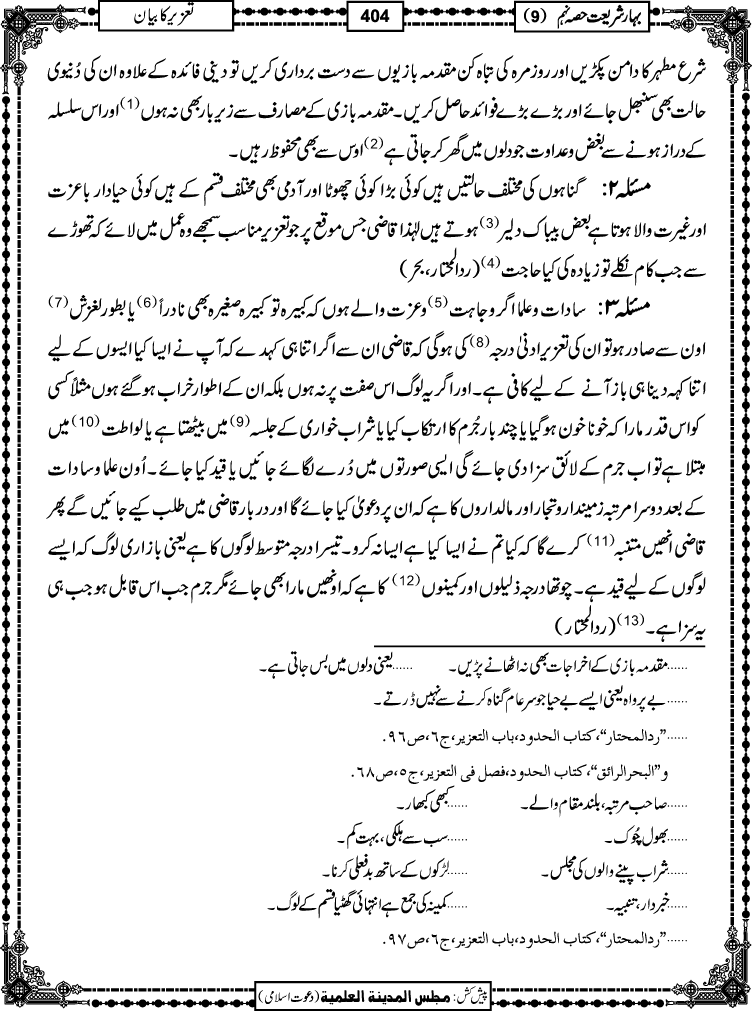 بہار شریعت حصہ نہم (9)
404
تعزیر کا بیان
شرع مطہر کا دامن پکڑیں اور روزمرہ کی تباہ کن مقدمہ بازیوں سے دست برداری کریں تو دینی فائدہ کے علاوہ ان کی دُنیوی
حالت بھی سنبھل جائے اور بڑے بڑے فوائد حاصل کریں۔ مقدمہ بازی کے مصارف سے زیر بار بھی نہ ہوں (1) اور اس سلسلہ
کے دراز ہونے سے بغض و عداوت جو دلوں میں گھر کر جاتی ہے (2) اوس سے بھی محفوظ رہیں۔
مسئلہ ۲: گناہوں کی مختلف حالتیں ہیں کوئی بڑا کوئی چھوٹا اور آدمی بھی مختلف قسم کے ہیں کوئی حیادار باعزت
اور غیرت والا ہوتا ہے بعض بیباک دلیر (3) ہوتے ہیں لہٰذا قاضی جس موقع پر جو تعزیر مناسب سمجھے وہ عمل میں لائے کہ تھوڑے
سے جب کام نکلے تو زیادہ کی کیا حاجت (4) (ردالمحتار، بحر)
مسئلہ ۳: سادات و علما اگر وجاہت (5) و عزت والے ہوں کہ کبیرہ تو کبیرہ صغیرہ بھی نادراً (6) یا بطور لغزش (7)
اون سے صادر ہو تو ان کی تعزیر ادنیٰ درجہ (8) کی ہوگی کہ قاضی ان سے اگر اتنا ہی کہدے کہ آپ نے ایسا کیا ایسوں کے لیے
اتنا کہہ دینا ہی باز آنے کے لیے کافی ہے۔ اور اگر یہ لوگ اس صفت پر نہ ہوں بلکہ ان کے اطوار خراب ہو گئے ہوں مثلاً کسی
کو اس قدر مارا کہ خونا خون ہو گیا یا چند بار جُرم کا ارتکاب کیا یا شراب خواری کے جلسہ (9) میں بیٹھتا ہے یا لواطت (10) میں
مبتلا ہے تو اب جرم کے لائق سزا دی جائے گی ایسی صورتوں میں دُرے لگائے جائیں یا قید کیا جائے۔ اُون علما و سادات
کے بعد دوسرا مرتبہ زمیندار و تجار اور مالداروں کا ہے کہ ان پر دعویٰ کیا جائے گا اور دربار قاضی میں طلب کیے جائیں گے پھر
قاضی انھیں متنبہ (11) کرے گا کہ کیا تم نے ایسا کیا ہے ایسا نہ کرو۔ تیسرا درجہ متوسط لوگوں کا ہے یعنی بازاری لوگ کہ ایسے
لوگوں کے لیے قید ہے۔ چوتھا درجہ ذلیلوں اور کمینوں (12) کا ہے کہ اونھیں مارا بھی جائے مگر جرم جب اس قابل ہو جب ہی
یہ سزا ہے۔ (13) (ردالمحتار)
......مقدمہ بازی کے اخراجات بھی نہ اٹھانے پڑیں۔ ......یعنی دلوں میں بس جاتی ہے۔
......بے پرواہ یعنی ایسے بے حیا جو سرعام گناہ کرنے سے نہیں ڈرتے۔
......”ردالمحتار“، کتاب الحدود، باب التعزیر، ج۶، ص۹۶.
و ”البحرالرائق“، کتاب الحدود، فصل فی التعزیر، ج۵، ص۶۸.
......صاحب مرتبہ، بلند مقام والے۔ ......کبھی کبھار۔
......بھول چُوک۔ ......سب سے ہلکی، بہت کم۔
......شراب پینے والوں کی مجلس۔ ......لڑکوں کے ساتھ بدفعلی کرنا۔
......خبردار، تنبیہ۔ ......کمینہ کی جمع ہے انتہائی گھٹیا قسم کے لوگ۔
......”ردالمحتار“، کتاب الحدود، باب التعزیر، ج۶، ص۹۷.
پیش کش: مجلس المدینة العلمیة (دعوت اسلامی)